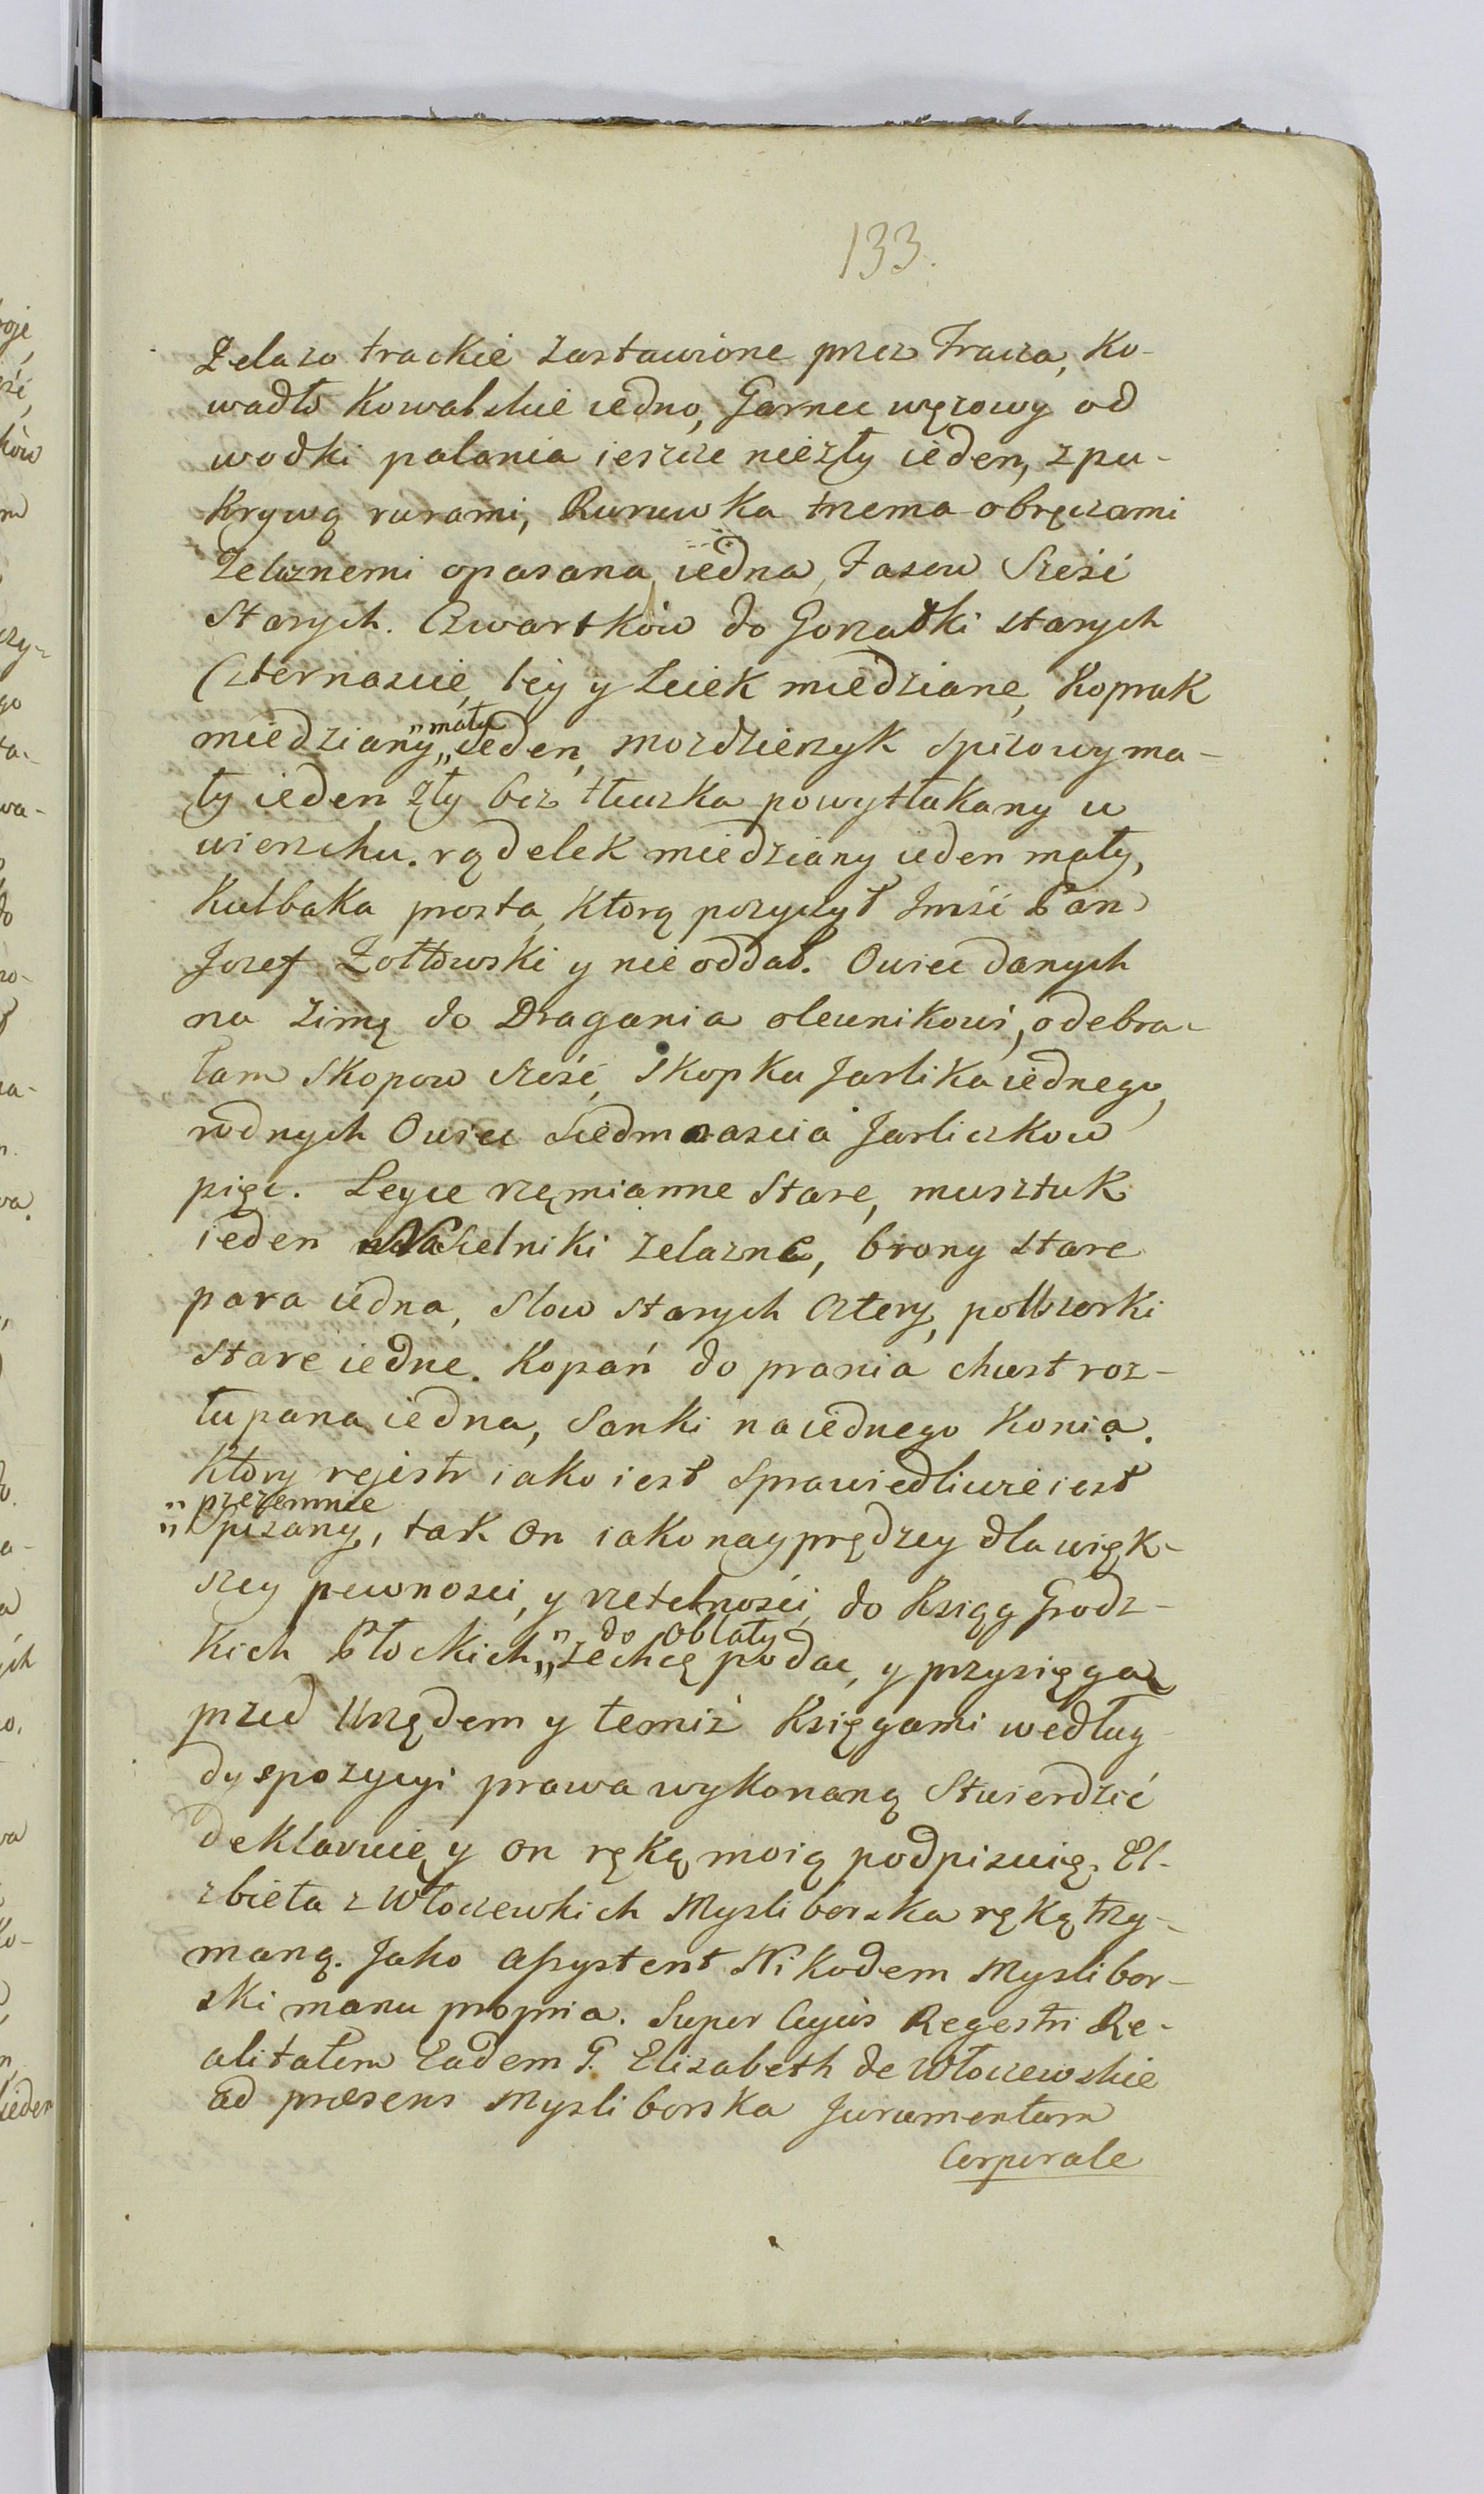 133.
Zelazo trackie zastawione przez Tracza, Ko-
wadło Kowalskie iedno, Garnec węzowy od
wodki palania ieszcze niezły ieden, z pu-
krywą rurami, Ruruwka trzema obręczami
Zelaznemi opasana iedna, Fasow Sześć
Starych. Czwartków do Gorzałki starych
Czternaście, léy y Lciek miedziane, Koprak
miedziany „ mały „ ieden, mozdzierzyk Spizowy ma-
ły ieden zły bez tłuczka powytłukany u
wierzchu. rądelek miedziany ieden mały,
Kulbaka prosta, Którą pozyczył Imść Pan
Jozef Zołtowski y nie oddał. Owiec danych
na Zimę do Dragania olewnikowi, odebra-
łam Skopow sześć, Skopka Jarlika iednego,
rodnych Owiec siedmnaścia Jarliczkow
pięc. Leyce rzęmianne Stare, musztuk
ieden Naszelniki zelazne, brony stare
para iedna, Slow starych Cztery, polszorki
Stare iedne. Kopań do prania chust roz-
łupana iedna, Sanki na iednego Konia.
Ktory rejestr iako iest Sprawiedliwie iest
„ przezemnie
„ Spisany, tak On iako nayprędzey dla więk-
szey pewności, y rzetelności, do Ksiąg Grodz-
kich Płockich „ do Oblaty „ zechcę podac, y przysięgą
przed Urzędem y temiż Księgami według
dyspozycyi prawa wykonaną Stwierdzić
deklaruię y on ręką moią podpisuię. El-
zbieta z Włoczewkich Mysliborska ręką trzy-
maną. Jako assystent Nikodem Myslibor-
ski manu propria. Super Cujus Regestri Re-
alitatem Eadem G. Elisabeth de Włoczewskie
ad præsens Mysliborska Juramentum
Corporale